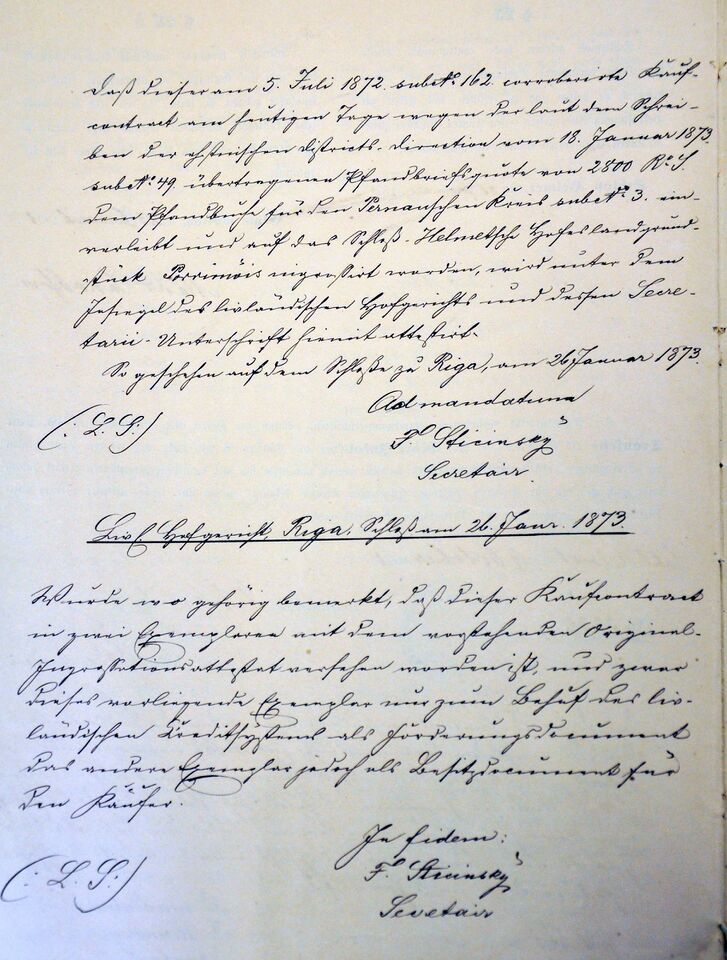 Daß dieser am 5. Juli 1872. sub № 162. corroborirte Kauf-
contract am heutigen Tage wegen der laut dem Schrei-
ben der ehstnischen Districts-Direction vom 18. Januar 1873.
sub № 49. übertragenen Pfandbriefsquote von 2800 R. S.
dem Pfandbuche für den Pernauschen Kreis sub № 3. ein-
verleibt und auf das Schloß-Helmetsche Hofeslandgrund-
stück Porrimöis ingrossirt worden, wird unter dem
Insiegel des livländischen Hofgerichts und dessen Secre-
tarii-Unterschrift hiemit attestirt.
So geschehen auf dem Schloße zu Riga, am 26 Januar 1873.
Ad mandatum
(: L. S :)
F. Sticinsky
Secretair.
Livl. Hofgericht, Riga, Schloß am 26. Janr. 1873.
Wurde wo gehörig bemerkt, daß dieser Kaufcontract
in zwei Exemplaren mit dem vorstehenden Original-
Ingrossationsattestat versehen worden ist, und zwar
dieses vorliegende Exemplar nur zum Behuf des liv-
ländischen Creditsystems als Forderungsdocument
das andere Exemplar jedoch als Besitzdocument für
den Käufer.
In fidem:
(: L. S :)
F. Sticinsky
Secretair